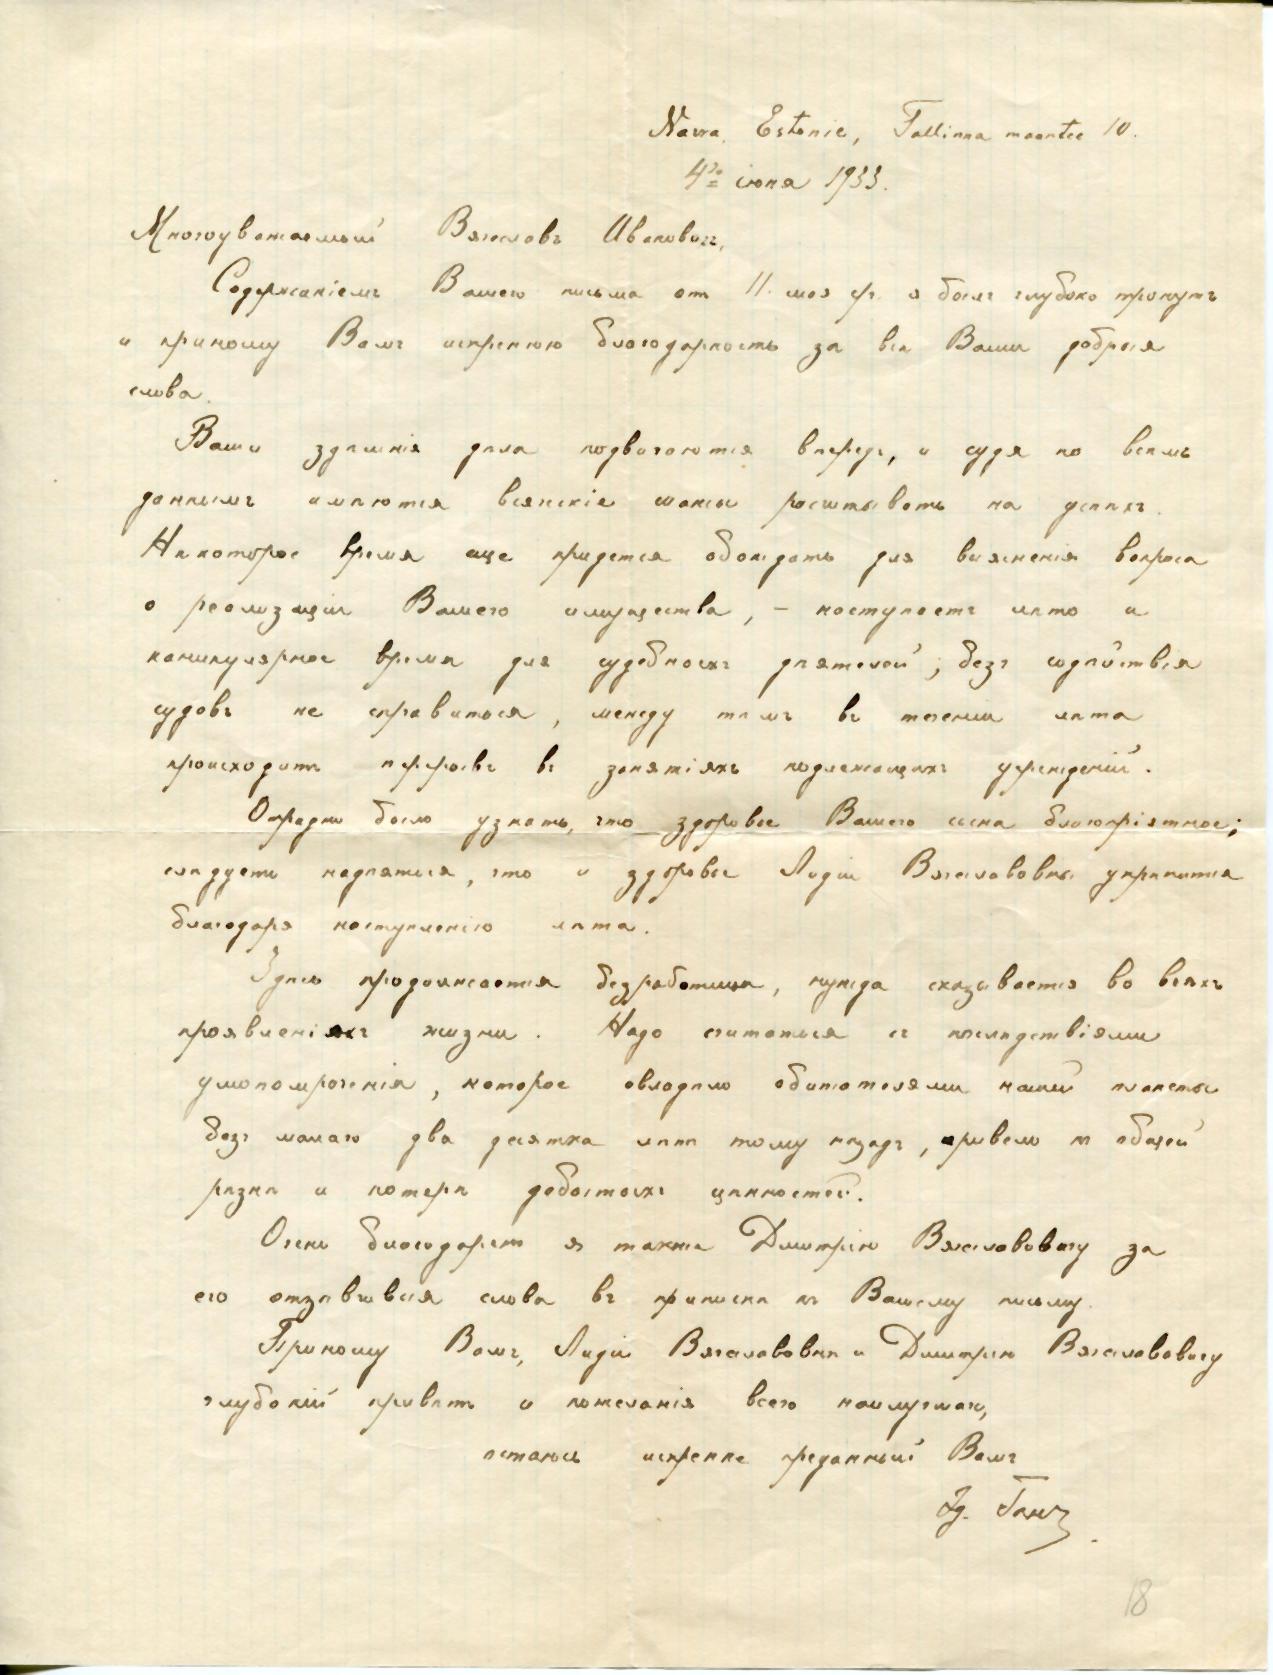 Narva, Estonie, Tallinna maantee 10.
4го іюня 1933.
Многоуважаемый Вячеславъ Ивановичъ,
Содержаніемъ Вашего письма от 11. мая я былъ глубоко тронутъ
и приношу Вамъ искреннюю благодарность за всѣ Ваши добрыя
слова.
Ваши здѣшнія дѣла подвигаются впередъ, и судя по всѣмъ
даннымъ имѣются всяческіе шансы расчитывать на успѣхъ.
Нѣкоторое время еще придется обождать для выясненія вопроса
о реализаціи Вашего имущества, – наступаетъ лѣто и
каникулярное время для судебныхъ дѣятелей; безъ содѣйствія
судовъ не справиться, между тѣмъ въ теченіи лѣта
происходитъ перерывъ въ занятіяхъ подлежащихъ учрежденій.
Отрадно было узнать, что здоровье Вашего сына благопріятное;
слѣдуетъ надѣяться, что и здоровье Лидіи Вячеславовны укрѣпится
благодаря наступленію лѣта.
Здѣсь продолжается безработица, нужда сказывается во всѣхъ
проявленіяхъ жизни. Надо считаться съ послѣдствіями
умопомраченія, которое овладѣло обитателями нашей планеты
безъ малаго два десятка лѣтъ тому назадъ, привело къ общей
рѣзнѣ и потерѣ добытыхъ цѣнностей.
Очень благодаренъ я также Дмитрію Вячеславовичу за
его отзывчивыя слова въ припискѣ къ Вашему письму.
Приношу Вамъ, Лидіи Вячеславовнѣ и Дмитрію Вячеславовичу
глубокій привѣтъ и пожеланія всего наилучшаго,
остаюсь искренне преданный Вамъ
18